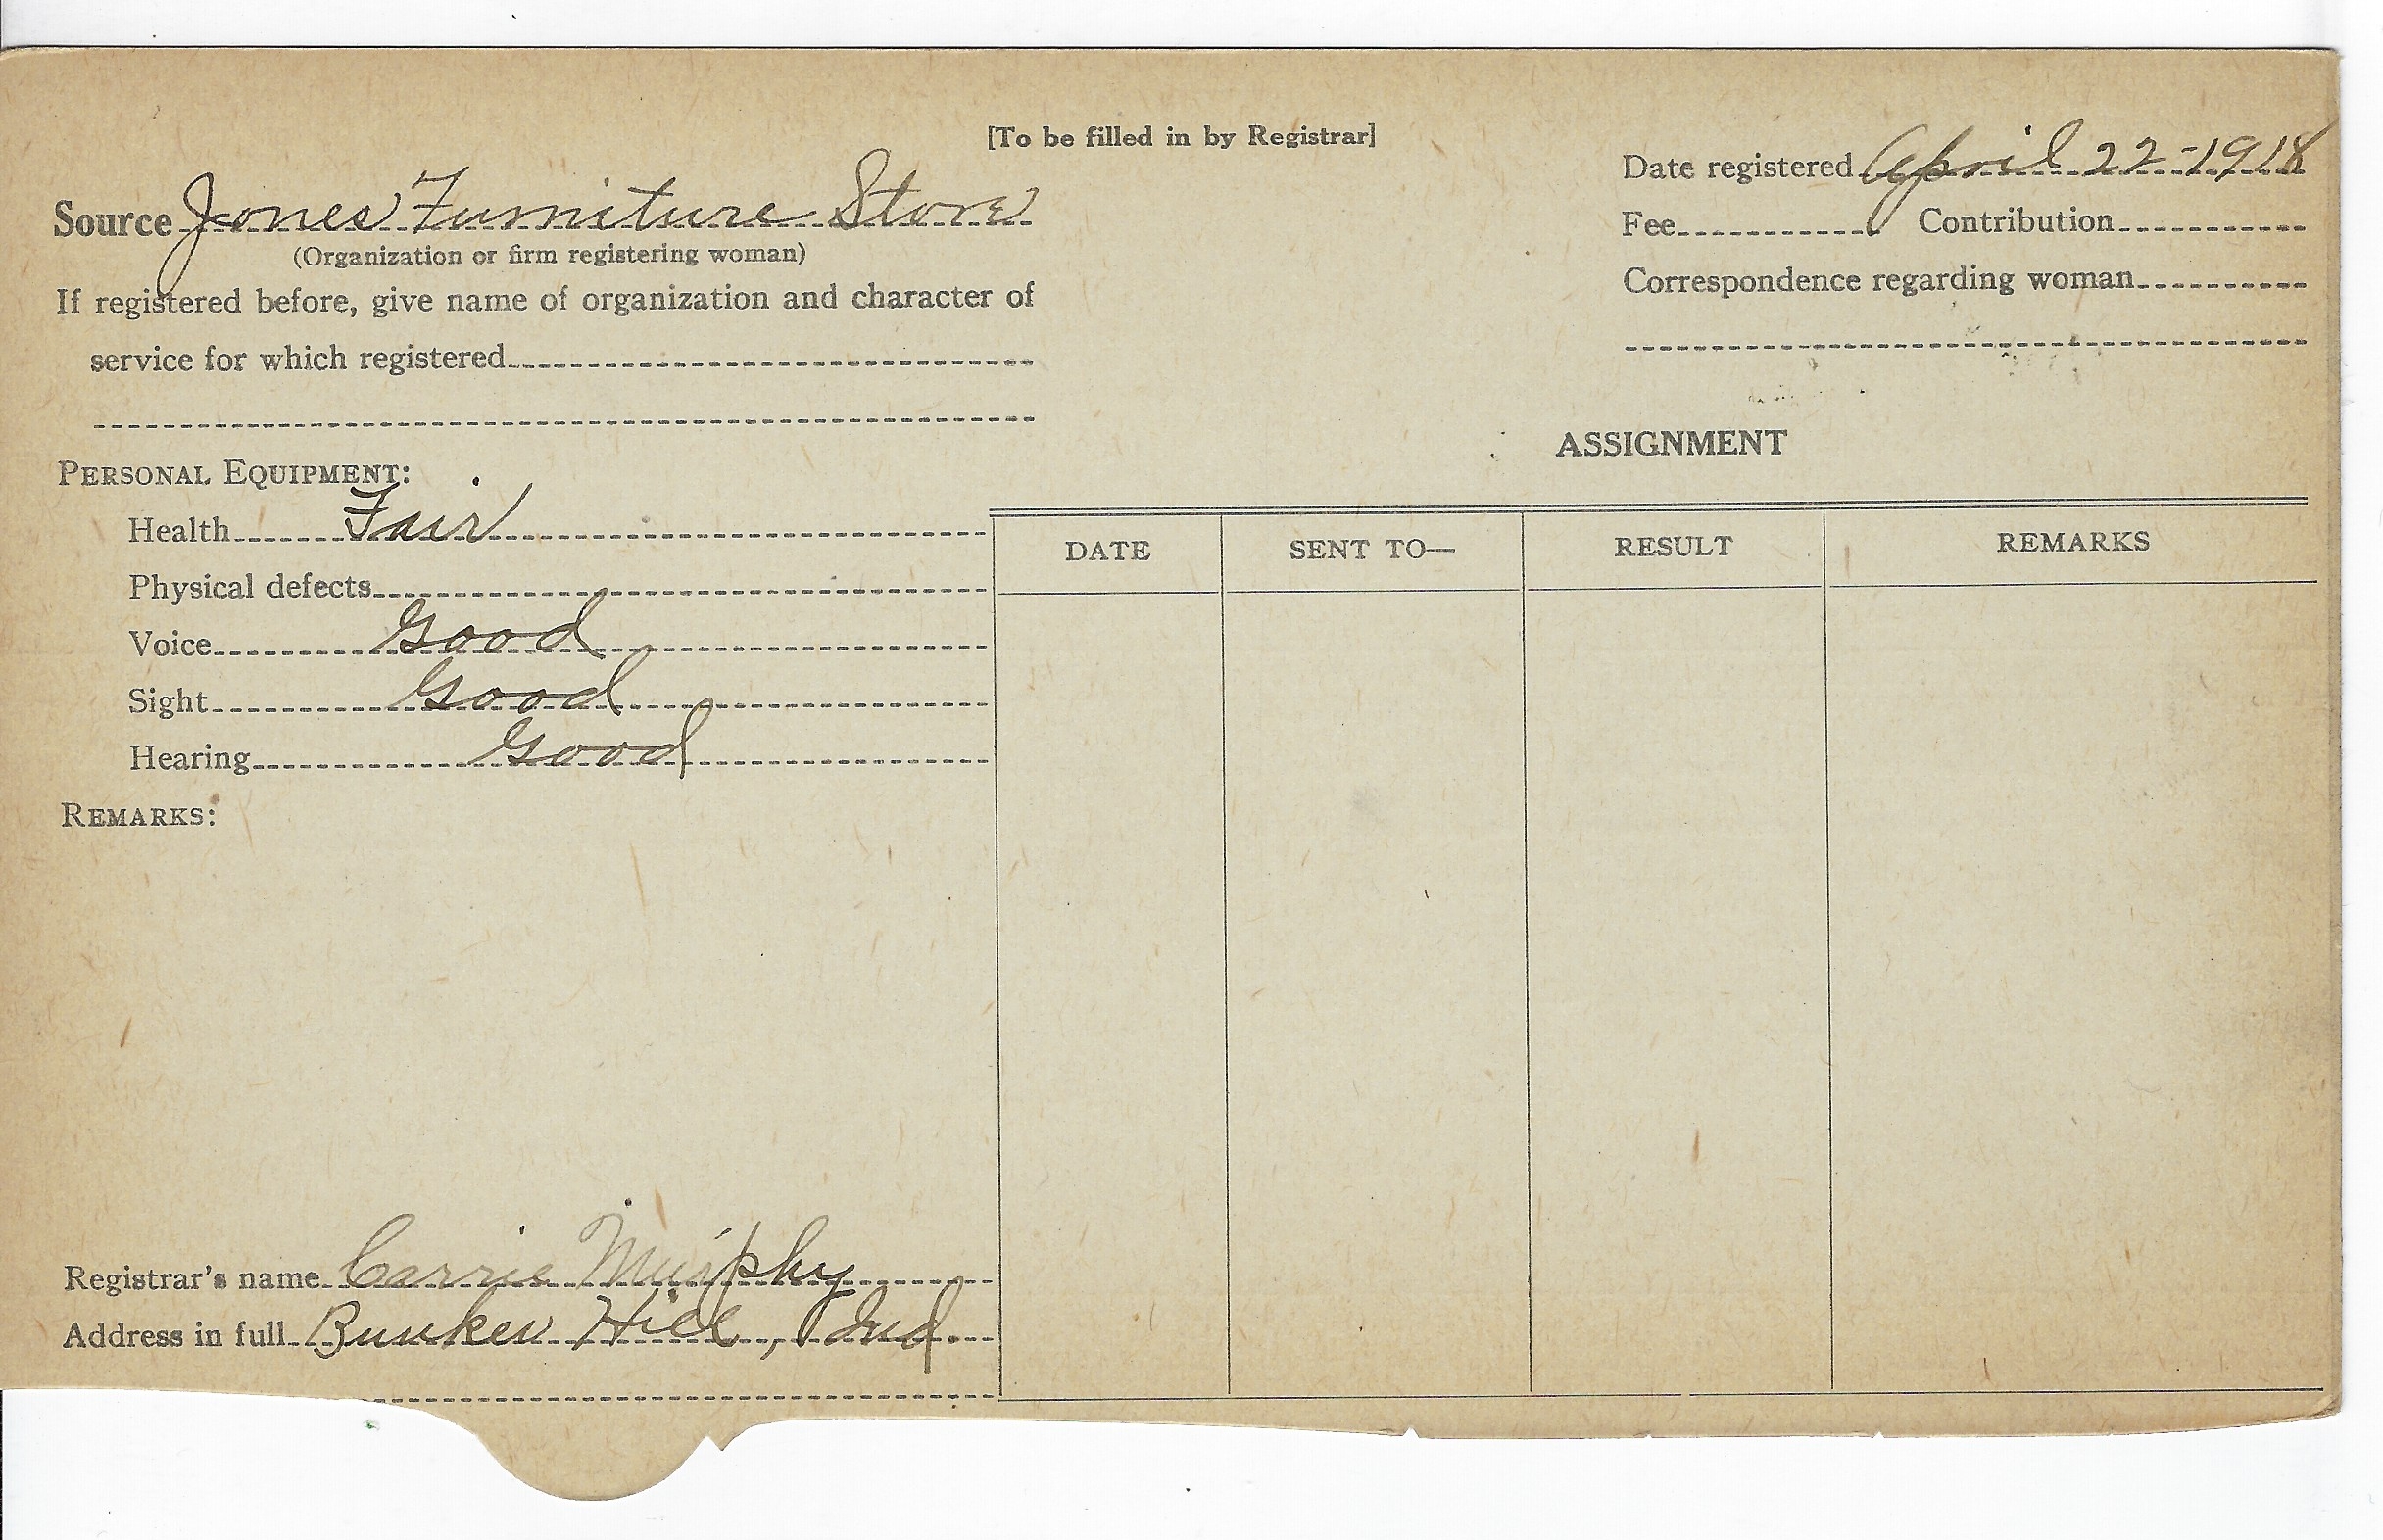 [To be filled in by Registrar]
Date registered April 22-1918
Source Jones Furniture Store
(Organization or firm registering woman)
Fee Contribution
If registered before, give name of organization and character of
service for which registered
Correspondence regarding woman
ASSIGNMENT
PERSONAL EQUIPMENT:
Health Fair
Physical defects
Voice Good
Sight Good
Hearing Good
DATE SENT TO— RESULT REMARKS
REMARKS:
Registrar's name Carrie Murphy
Address in full Bunker Hill, Ind.